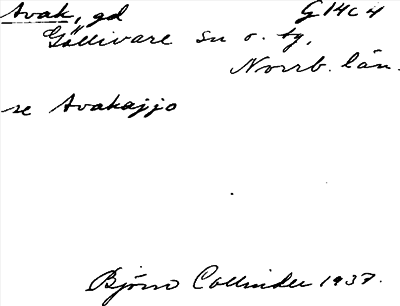 Avak, gd G14c4
Gällivare sn o. tg,
Norrb. län.
se Avakajjo
Björn Collinder 1937.